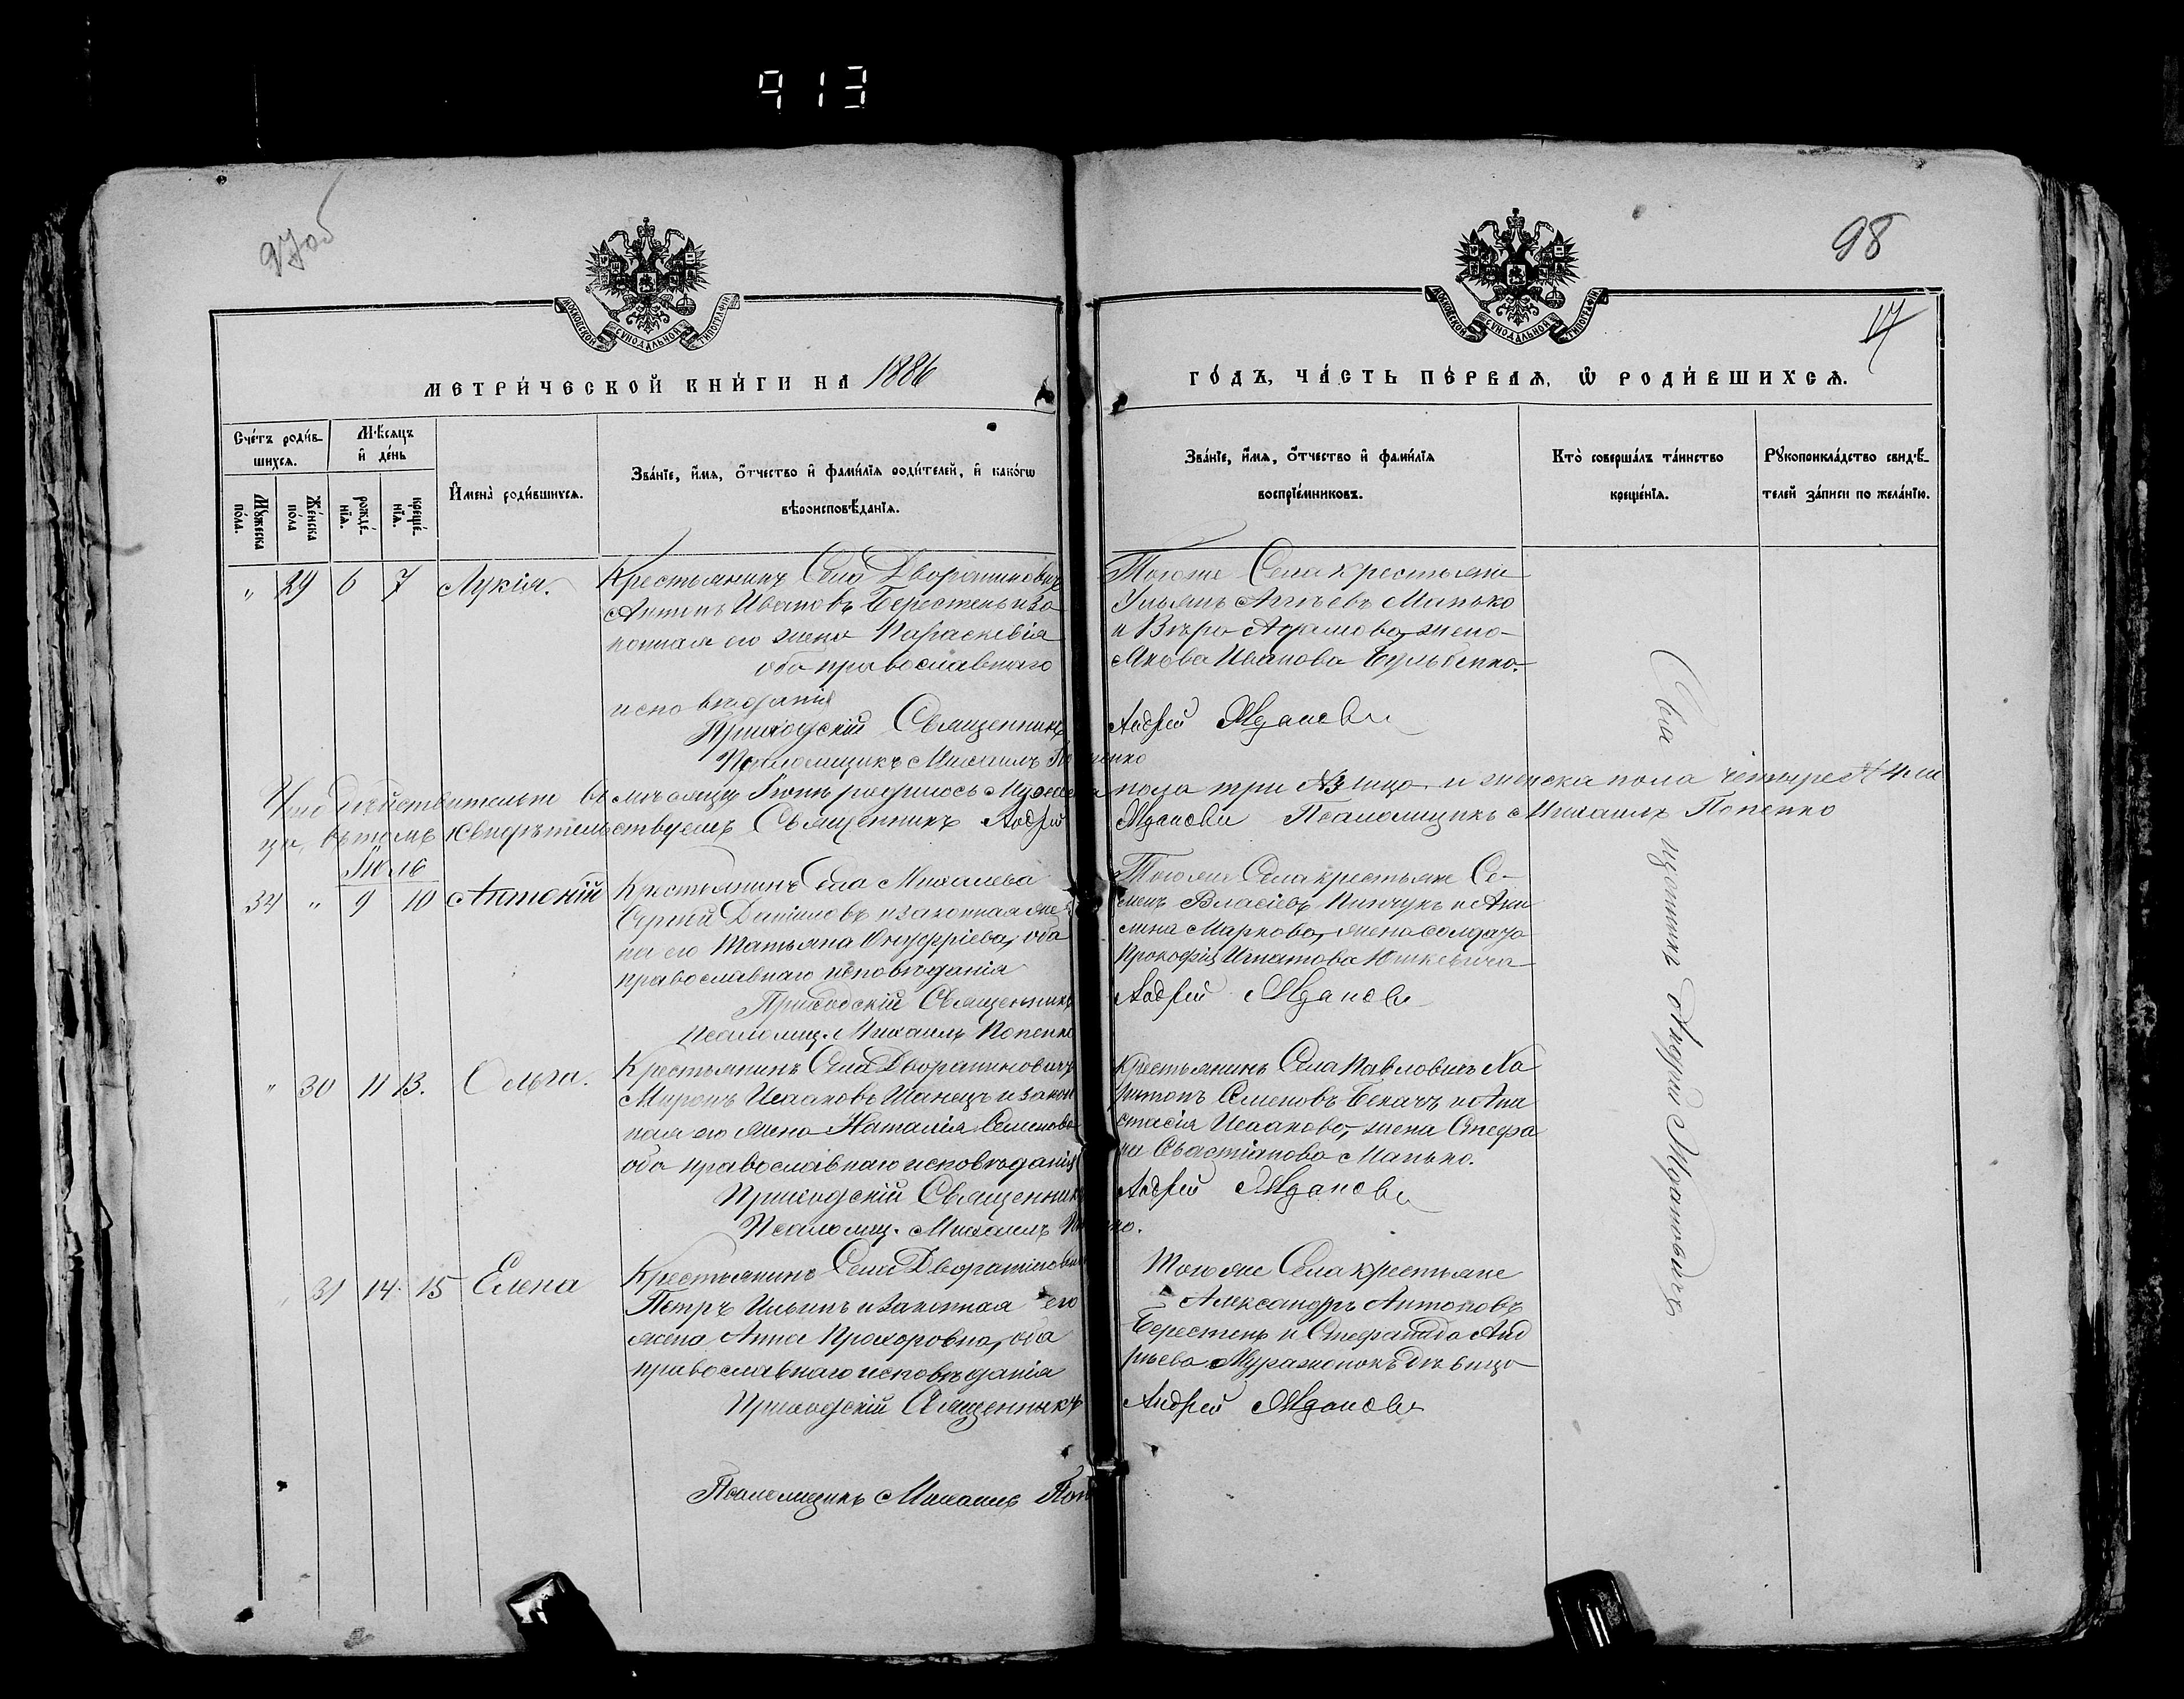 913
97об
98
17
МОСКОВСКОЙ СѴНОДАЛЬНОЙ ТИПОГРАФІИ
МОСКОВСКОЙ СѴНОДАЛЬНОЙ ТИПОГРАФІИ
МЕТРИЧЕСКОЙ КНИГИ НА 1886
ГОДЪ, ЧАСТЬ ПЕРВАЯ, Ѡ РОДИВШИХСЯ.
Счетъ родив-
шихся.
Мужеска
пола.
Женска
пола
Мѣсяцъ
и день
рожде-
нія.
креще-
нія.
Имена родившихся.
Званіе, имя, отчество и фамилія родителей, и какогѡ
вѣроисповѣданія.
Званіе, имя, отчество и фамилія
воспріемниковъ.
Кто совершалъ таинство
крещенія.
Рукоприкладство свидѣ-
телей записи по желанію.
" 29 6 7 Лукія.
Крестьянинъ Села Дворяниновичъ
Антипъ Ивановъ Берестень и за-
конная его жена Параскевія
оба православнаго
исповѣданія
Приходскій Священникъ
Псаломщикъ Михаилъ Попенко
Тогоже Села крестьяне
Ульянъ Манько
и Вѣра Адамова, жена
Якова Иванова Бульбенко.
Андрей
Что дѣйствительно въ мѣсяцѣ Іюнѣ родилось Мужеска пола три № 3 лица и женска пола четыре № 4 ли
ца, въ томъ свидѣтельствуемъ Священникъ Андрей Псаломщикъ Михаилъ Попенко
Іюль
34 " 9 10 Антоній
Крестьянинъ Села Михалева
Сергій Даніиловъ и законная же-
на его Татьяна Онуфріева, оба
православнаго исповѣданія
Приходскій Священникъ
Псаломщ. Михаилъ Попенко
Тогоже Села крестьяне Се-
менъ Власіевъ Пинчукъ и Аки-
лина Маркова, жена солдата
Прокофія Игнатова Юшкевича
Андрей
" 30 11 13. Ольга.
Крестьянинъ Села Дворяниновичъ
Миронъ Исааковъ Шанецъ и закон
ная его жена Наталія Семенова
оба православнаго исповѣданія
Приходскій Священникъ
Псаломщ. Михаилъ
Крестьянинъ Села Павловичъ Ха
ритонъ Семеновъ Бекачъ и Ана
стасія Исаакова, жена Стефа
на Савастіанова Манько.
Андрей
" 31 14. 15 Елена
Крестьянинъ Села Дворяниновичъ
Петръ Ильинъ и законная его
жена Анна Прохоровна, оба
православнаго исповѣданія
Приходскій Священникъ
Псаломщикъ Михаилъ
Тогоже Села крестьяне
Александръ Антоновъ
Берестень и Стефанида Анд
рѣева дѣвица
Андрей
Священникъ Андрей